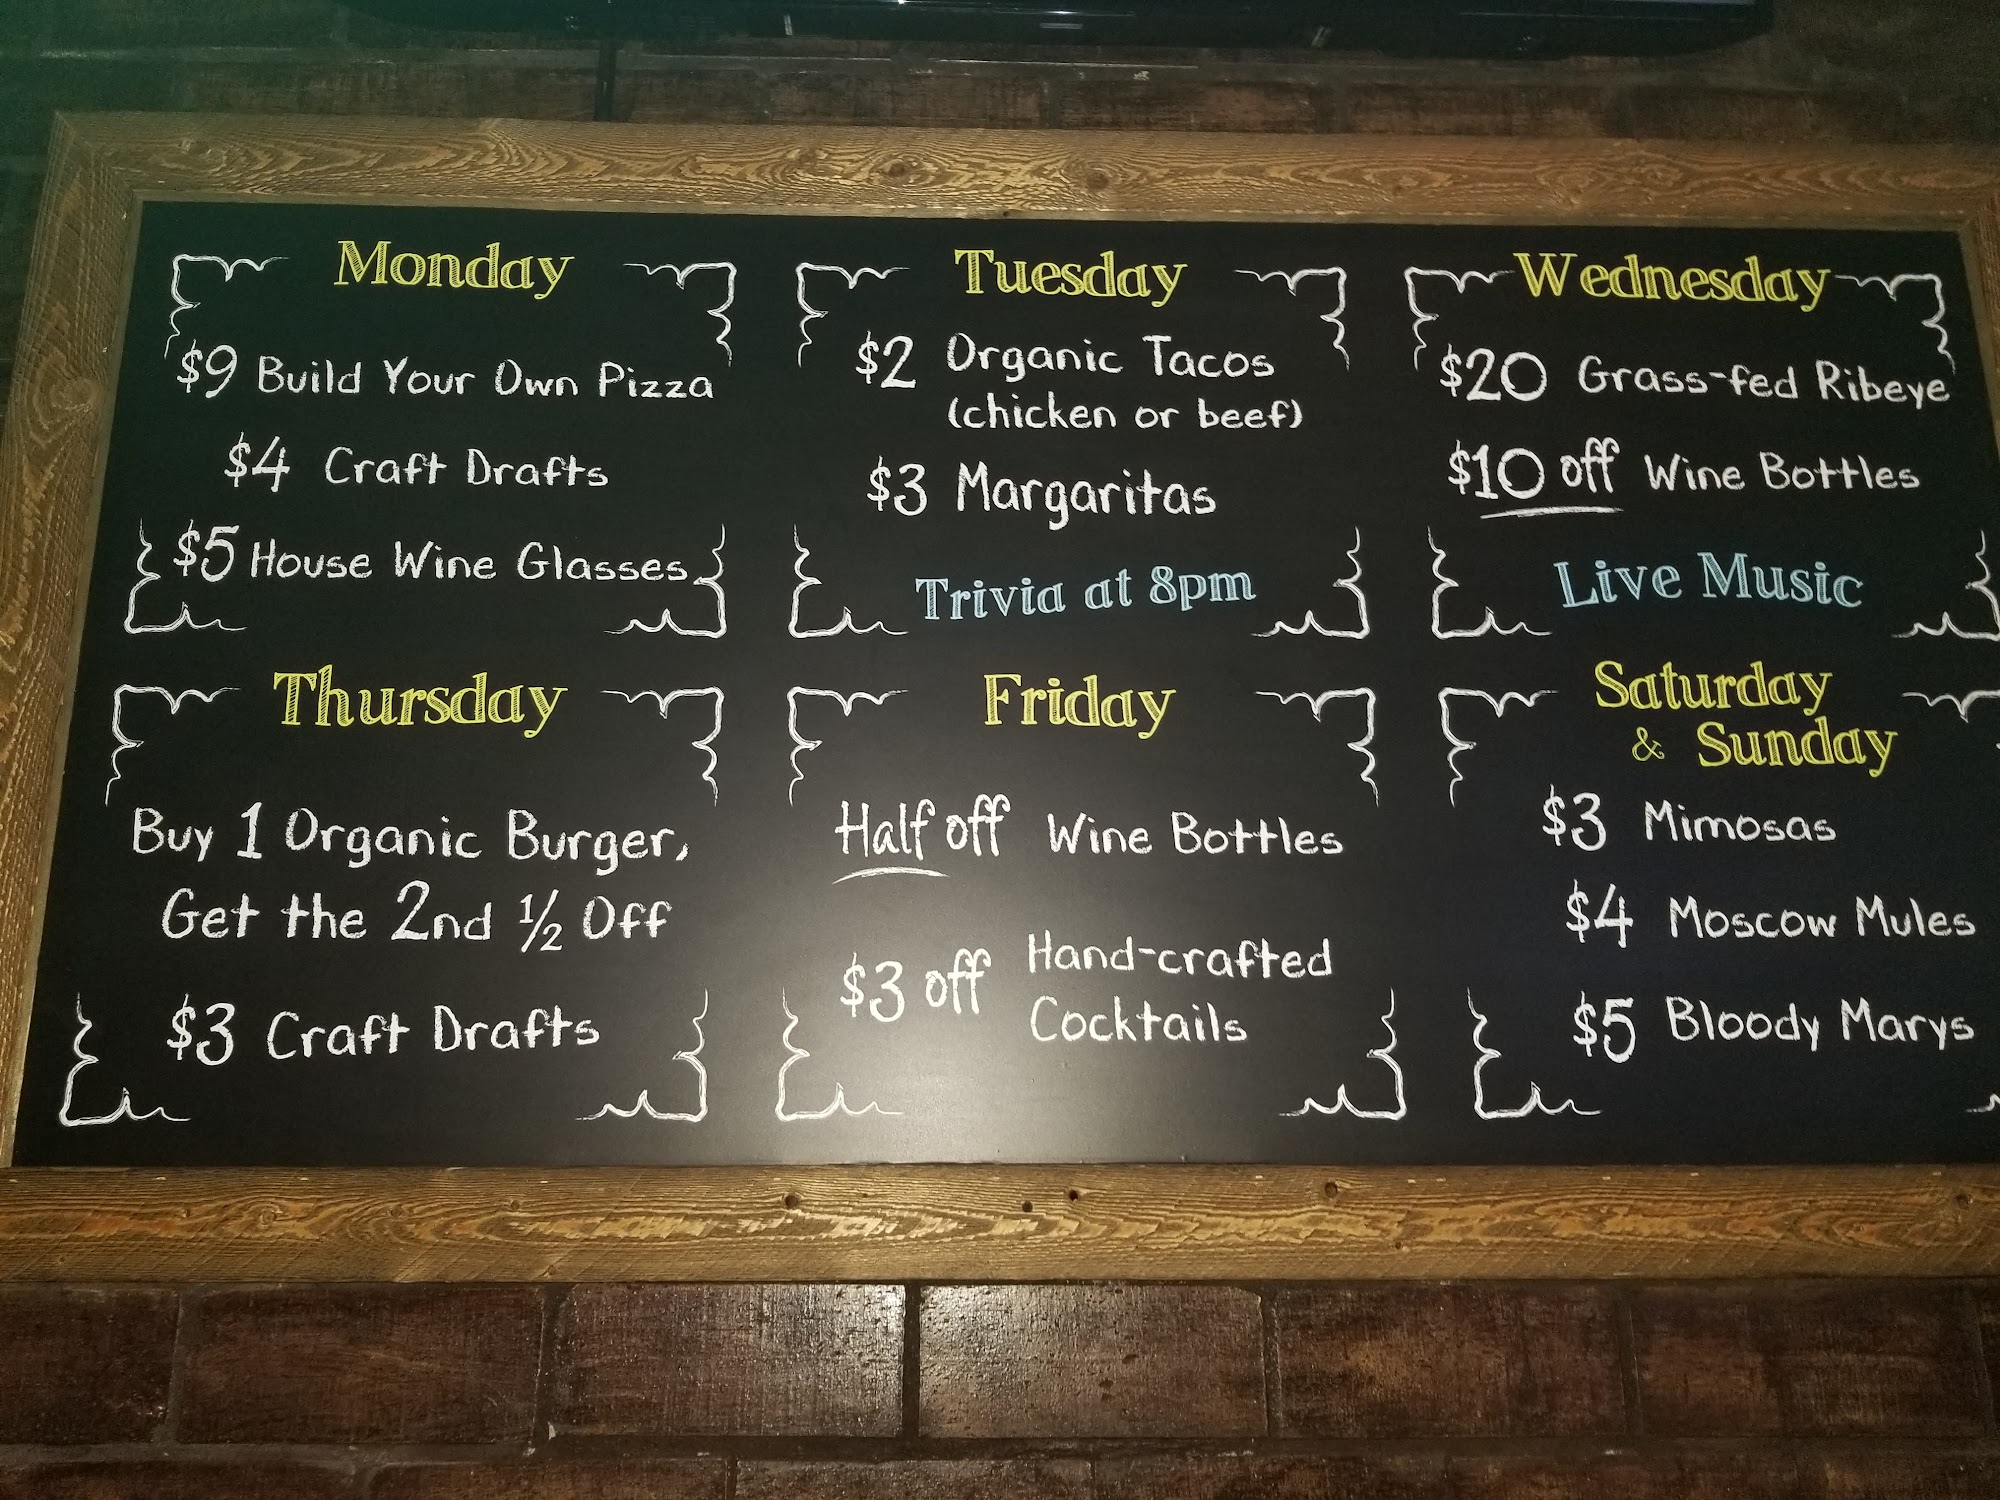 Monday
$9 Build Your Own Pizza
$4 Craft Drafts
$5 House Wine Glasses
Tuesday
$2 Organic Tacos
(chicken or beef)
$3 Margaritas
Trivia at 8pm
Wednesday
$20 Grass-fed Ribeye
$10 off Wine Bottles
Live Music
Thursday
Buy 1 Organic Burger,
Get the 2nd ½ Off
$3 Craft Drafts
Friday
Half off Wine Bottles
$3 off Hand-crafted
Cocktails
Saturday
& Sunday
$3 Mimosas
$4 Moscow Mules
$5 Bloody Marys